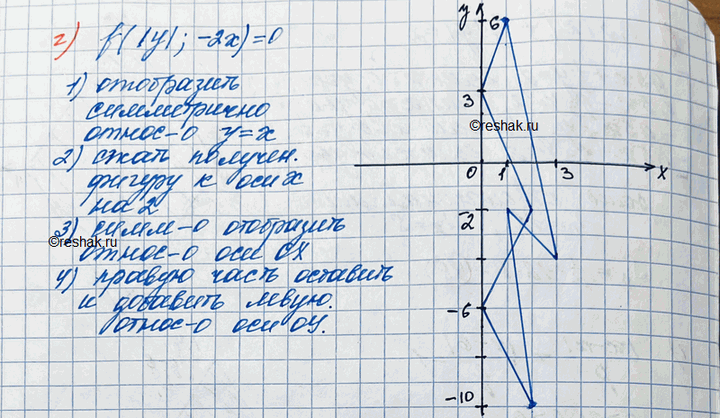 г) f(|y|; -2x)=0
1) отобразить
симметрично
относ-о y=x
2) сжать получен.
фигуру к оси x
на 2
3) симм-о отобразить
относ-о оси OX
4) правую часть оставить
и добавить левую.
относ-о оси OY.
©reshak.ru
y
6
3
©reshak.ru
0 1 3 x
-2
-6
-10